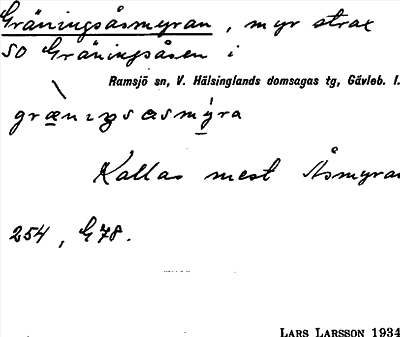 Gräningsåsmyran, myr strax
SO Gräningsåsen i
Ramsjö sn, V. Hälsinglands domsagas tg, Gävleb. l.
Kallas mest Åsmyran
254, G78.
LARS LARSSON 1934